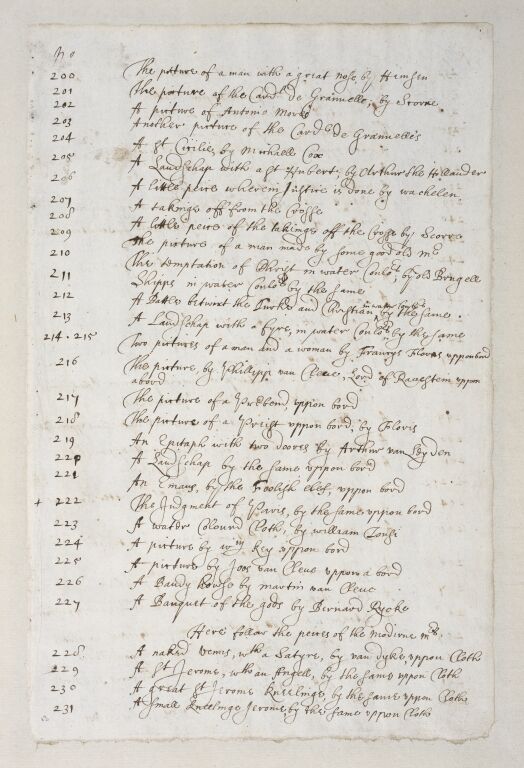 No
200 The picture of a man with a great nose by Hemsen
201 The picture of the Card.ll de Granuelle, by Scorne
202 A picture of Antonio Moro
203 Another picture of the Card.ll de Granuelle's
204 A St Cicilie, by Michaell Cox
205 A Landschap with a St Hubert; by Arthur the Hollander
206 A little peice wherein Justice is done by wachelen
207 A takinge off from the Crosse
208 A little peice of the takinge off the Crosse by: Scorne
209 The picture of a man made by some good old mr
210 The temptation of Christ in water Coulors, by old Brugell
211 Shipps in water Coulors by the same
212 A Battle bitwixt the Turks and Christians, in water Coulors, by the same
213 A Landschap with a fyre, in water Coulors by the same
214 . 215 Two pictures of a man and a woman by Frauncys Floras uppon bord
216 The picture, by Phillipp van Cleue, Lord of uppon
abord
217 The picture of a Prebend, uppon bord
218 The picture of a Preist uppon bord, by Floris
219 An Epitaph with two doores by Arthur van Leyden
220 A Landschap by the same uppon bord
221 An Emaus, by the Foolish eles, uppon bord
+ 222 The Judgment of Paris, by the same uppon bord
223 A water Colourd Cloth, by william Tonsi
224 A picture by wm Key uppon bord
225 A picture by Joos van Cleue uppon a bord
226 A Baudy house by martin van Cleue
227 A Banquet of the gods by Bernard Rycke
Here follow the peices of the moderne mrs
228 A naked venus, with a Satyre, by van dyke uppon Cloth
229 A St Jerome, with an Angell, by the same uppon Cloth
230 A great St Jerome kneelinge, by the same uppon Cloth
231 A small kneelinge Jerome, by the same uppon Cloth